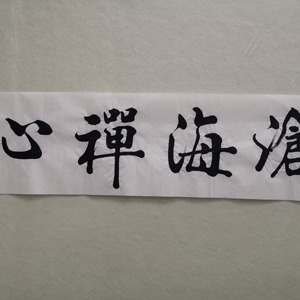 滄海禪心